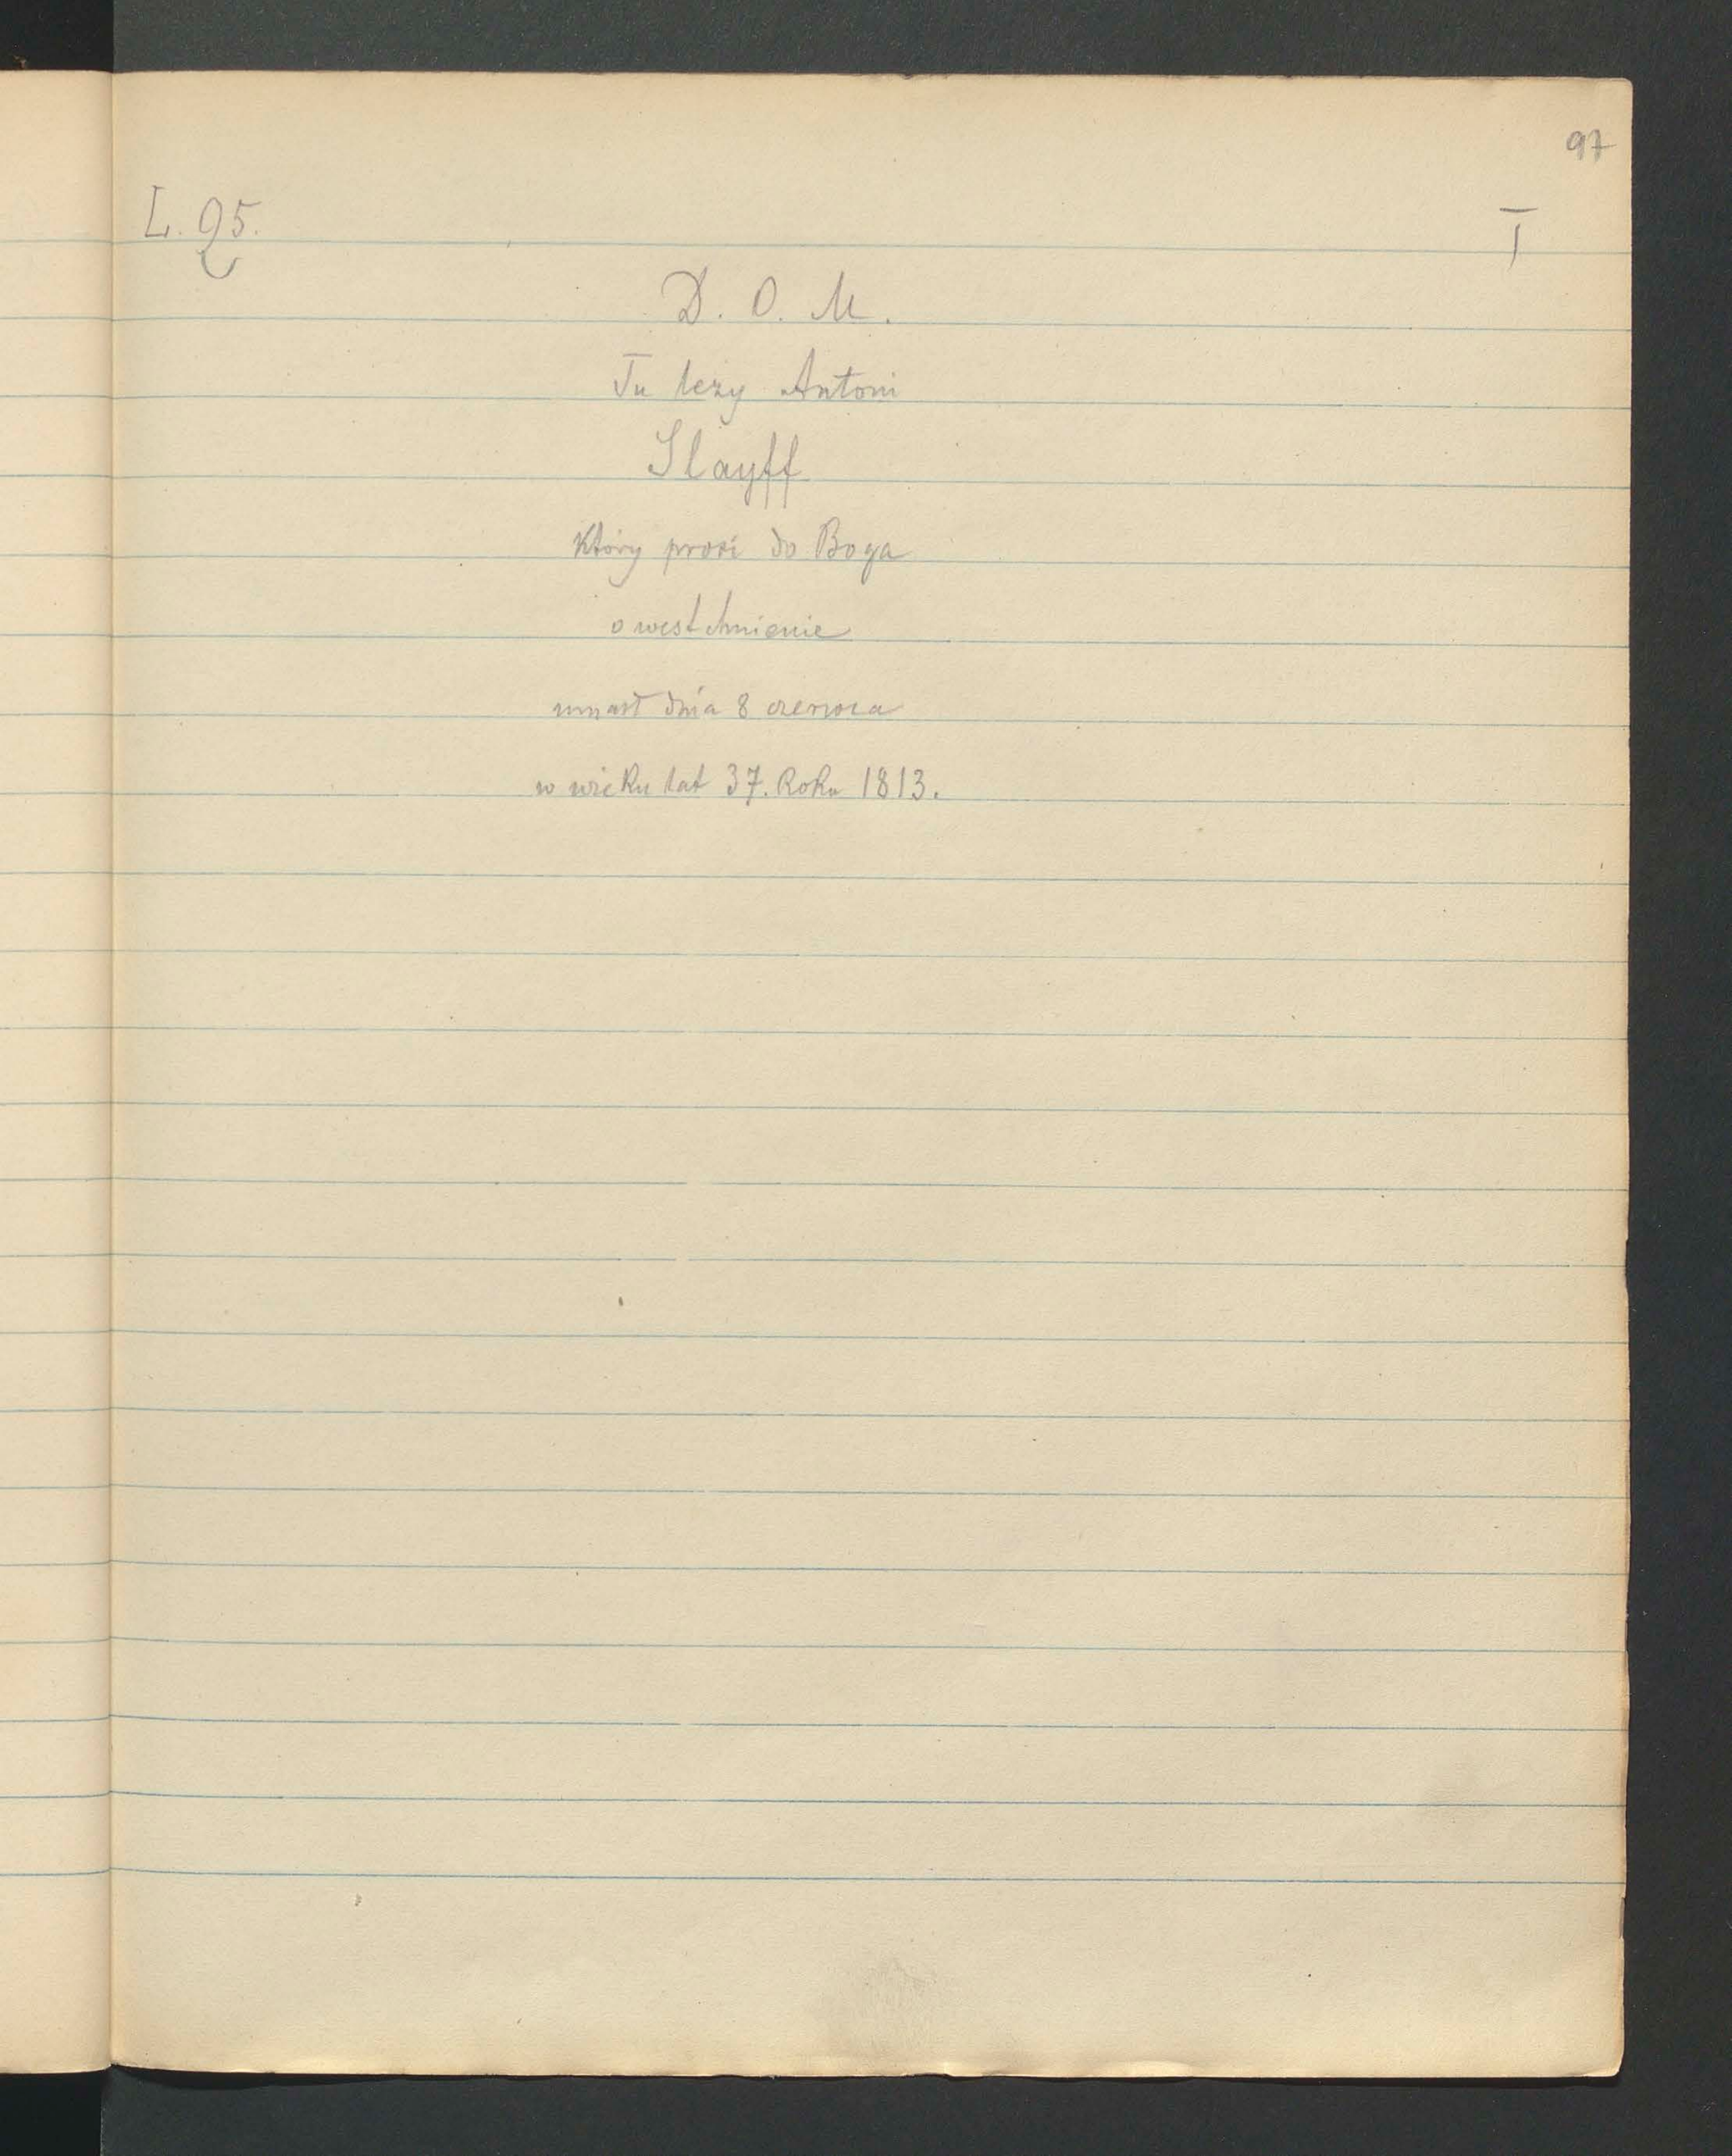 97
L. 95.
I
D. O. M.
Tu leży Antoni
Slayff
Który prosi do Boga
o westchnienie
umarł dnia 8 czerwca
w wieku lat 37. Roku 1813.